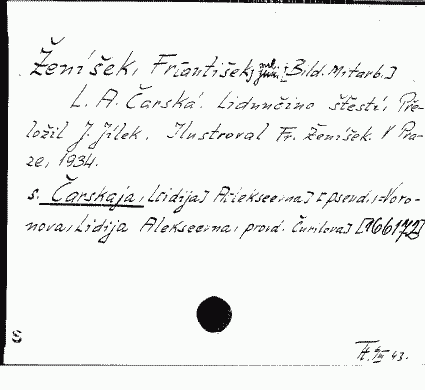 Ženíšek, František, ml. [Bild. Mitarb.]
L. A. Čarská. Lidunčino štěstí. Pře-
ložil J. Jílek. Ilustroval Fr. Ženíšek. V Pra-
ze, 1934.
s. Čarskaja, L[idija] A[lekseevna] [pseud., Voro-
nova, Lidija Alekseevna, provd. Čurilova] [166172]
S
43.